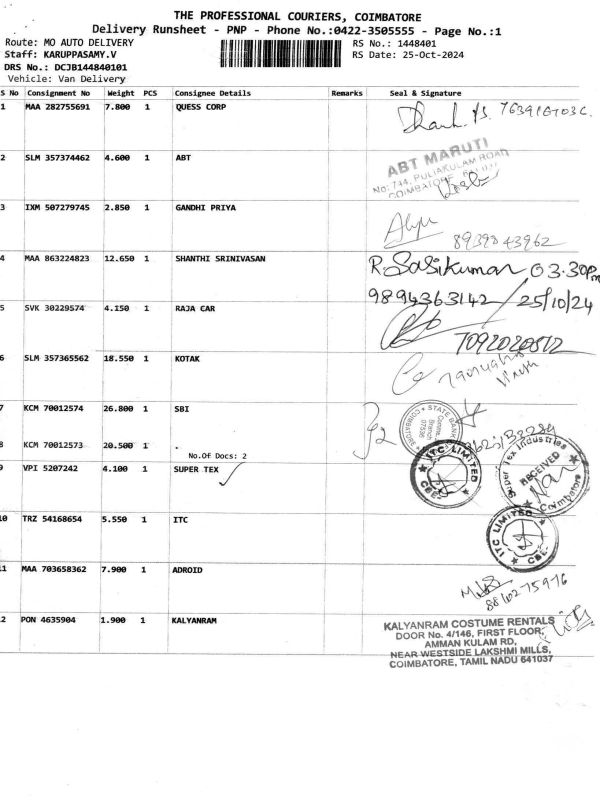 THE PROFESSIONAL COURIERS, COIMBATORE
Delivery Runsheet - PNP - Phone No.:0422-3505555 - Page No.:1
Route: MO AUTO DELIVERY
RS No.: 1448401
Staff: KARUPPASAMY.V
RS Date: 25-Oct-2024
DRS No.: DCJB144840101
Vehicle: Van Delivery
S No Consignment No Weight PCS Consignee Details Remarks Seal & Signature
1 MAA 282755691 7.800 1 QUESS CORP
2 SLM 357374462 4.600 1 ABT
ABT MARUTI
No: 744, PULIAKULAM ROAD
COIMBATORE
3 IXM 507279745 2.850 1 GANDHI PRIYA
8939843962
4 MAA 863224823 12.650 1 SHANTHI SRINIVASAN
R. Sasikumar 03.30pm
9894363142 / 25/10/24
5 SVK 30229574 4.150 1 RAJA CAR
7092020512
6 SLM 357365562 18.550 1 KOTAK
7 KCM 70012574 26.800 1 SBI
STATE BANK
COIMBATORE
Branch
8 KCM 70012573 20.500 1
No.Of Docs: 2
9 VPI 5207242 4.100 1 SUPER TEX
ITC LIMITED
CBE
Super Tex Industries
RECEIVED
Coimbatore
10 TRZ 54168654 5.550 1 ITC
ITC LIMITED
CBE
11 MAA 703658362 7.900 1 ADROID
12 PON 4635904 1.900 1 KALYANRAM
KALYANRAM COSTUME RENTALS
DOOR No. 4/146, FIRST FLOOR,
AMMAN KULAM RD,
NEAR WESTSIDE LAKSHMI MILLS,
COIMBATORE, TAMIL NADU 641037